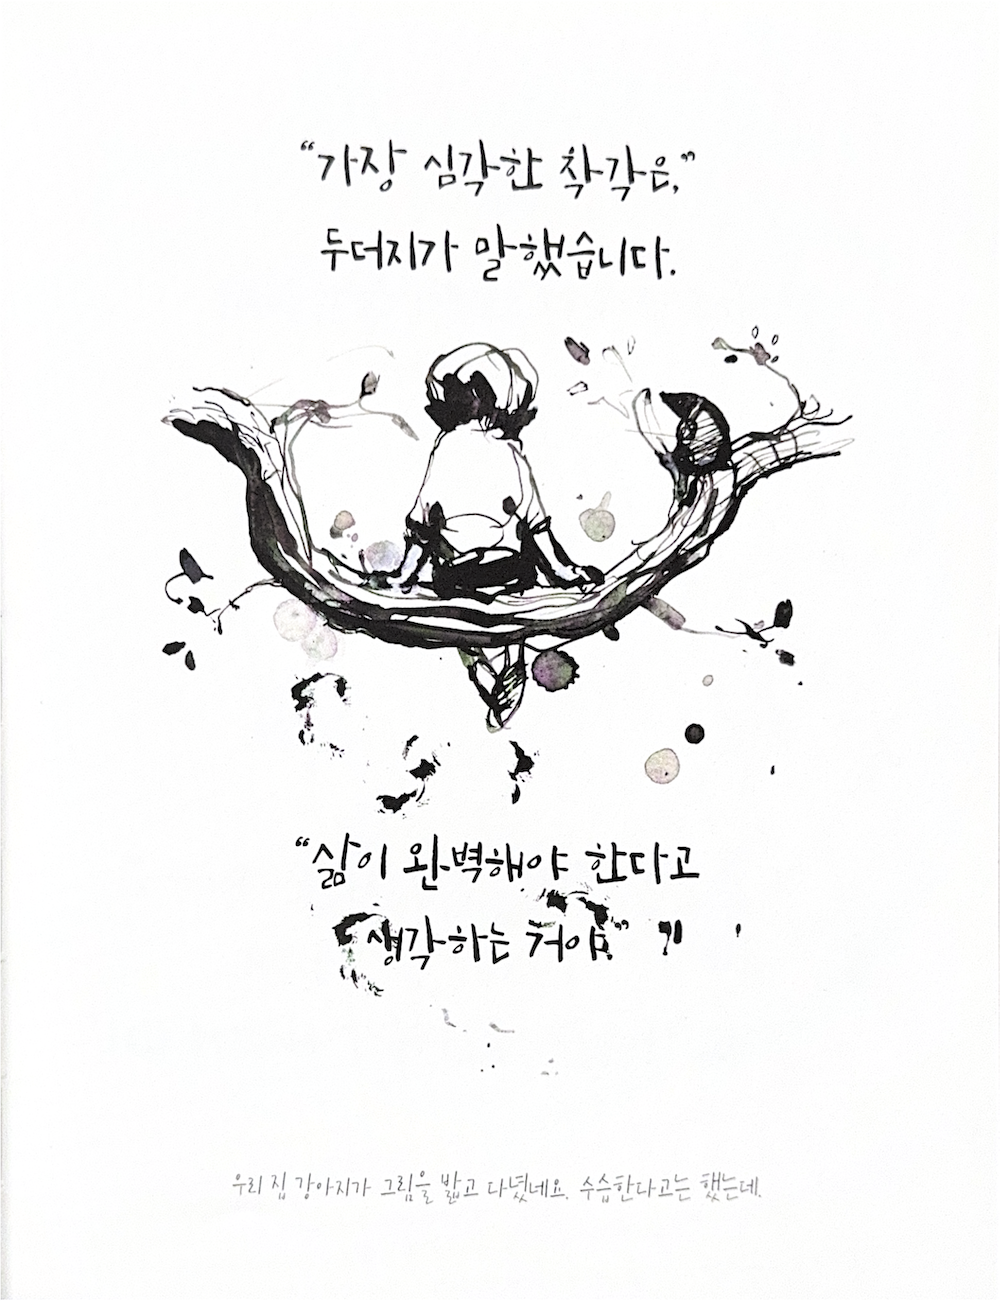 “가장 심각한 착각은,”
두더지가 말했습니다.
“삶이 완벽해야 한다고
생각하는 거야.”
우리 집 강아지가 그림을 밟고 다녔네요. 수습한다고는 했는데.